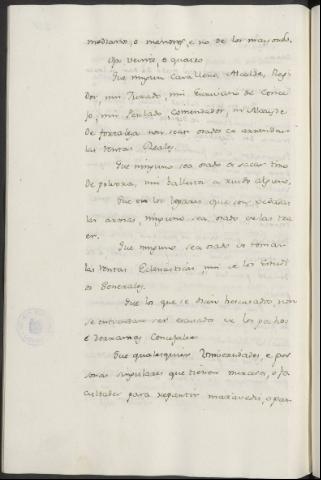 medianos, o menores, e no de los mayores.
Que ningun Cavallero, Alcalde, Regi-
dor, nin Jurado, nin Escrivano de Conce-
jo, nin Perlado, Comendador, ni Alcayde
de fortaleza non sean osados de arrendar
las Rentas Reales.
Que ninguno sea osado de sacar tiro
de polvora, nin ballesta a ruido alguno.
Que en los lugares que son vedadas
las armas, ninguno sea osado de las tra
er.
Que ninguno sea osado de tomar
las Rentas Eclesiasticas, nin de los Estudi
os Generales.
Que los que se dicen hescusados, non
se entiendan ser escusados de los pechos
e derramas Concejales.
Que qualesquier Universidades, e per
sonas singulares que tienen mercedes, o fa
cultades para repartir maravedis, o pan